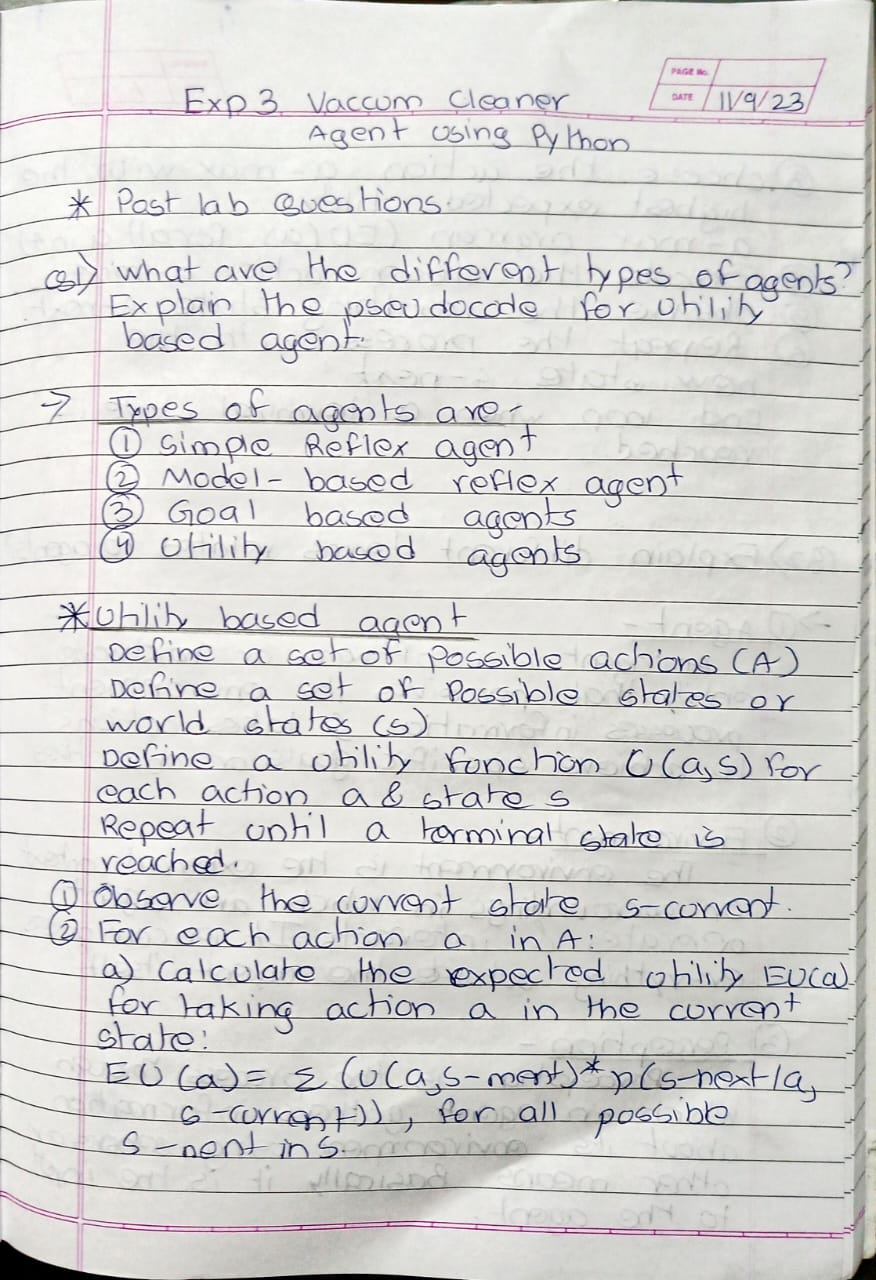 PAGE No.
DATE 11/9/23
Exp 3 Vaccum Cleaner
Agent using Python
* Post lab Questions.
Q1) what are the different types of agents?
Explain the pseudocode for Utility
based agent.
→ Types of agents are:-
① Simple Reflex agent
② Model-based reflex agent
③ Goal based agents
④ Utility based agents
* Utility based agent
Define a set of possible actions (A)
Define a set of possible states or
world states (s)
Define a utility function U(a,s) for
each action a & state s
Repeat until a terminal state is
reached.
① Observe the current state s-current.
② For each action a in A:
a) Calculate the expected utility EU(a)
for taking action a in the current
state:
EU(a)= Σ (U(a,s-ment)*p(s-next/a,
s-current)), for all possible
s-nent in s.